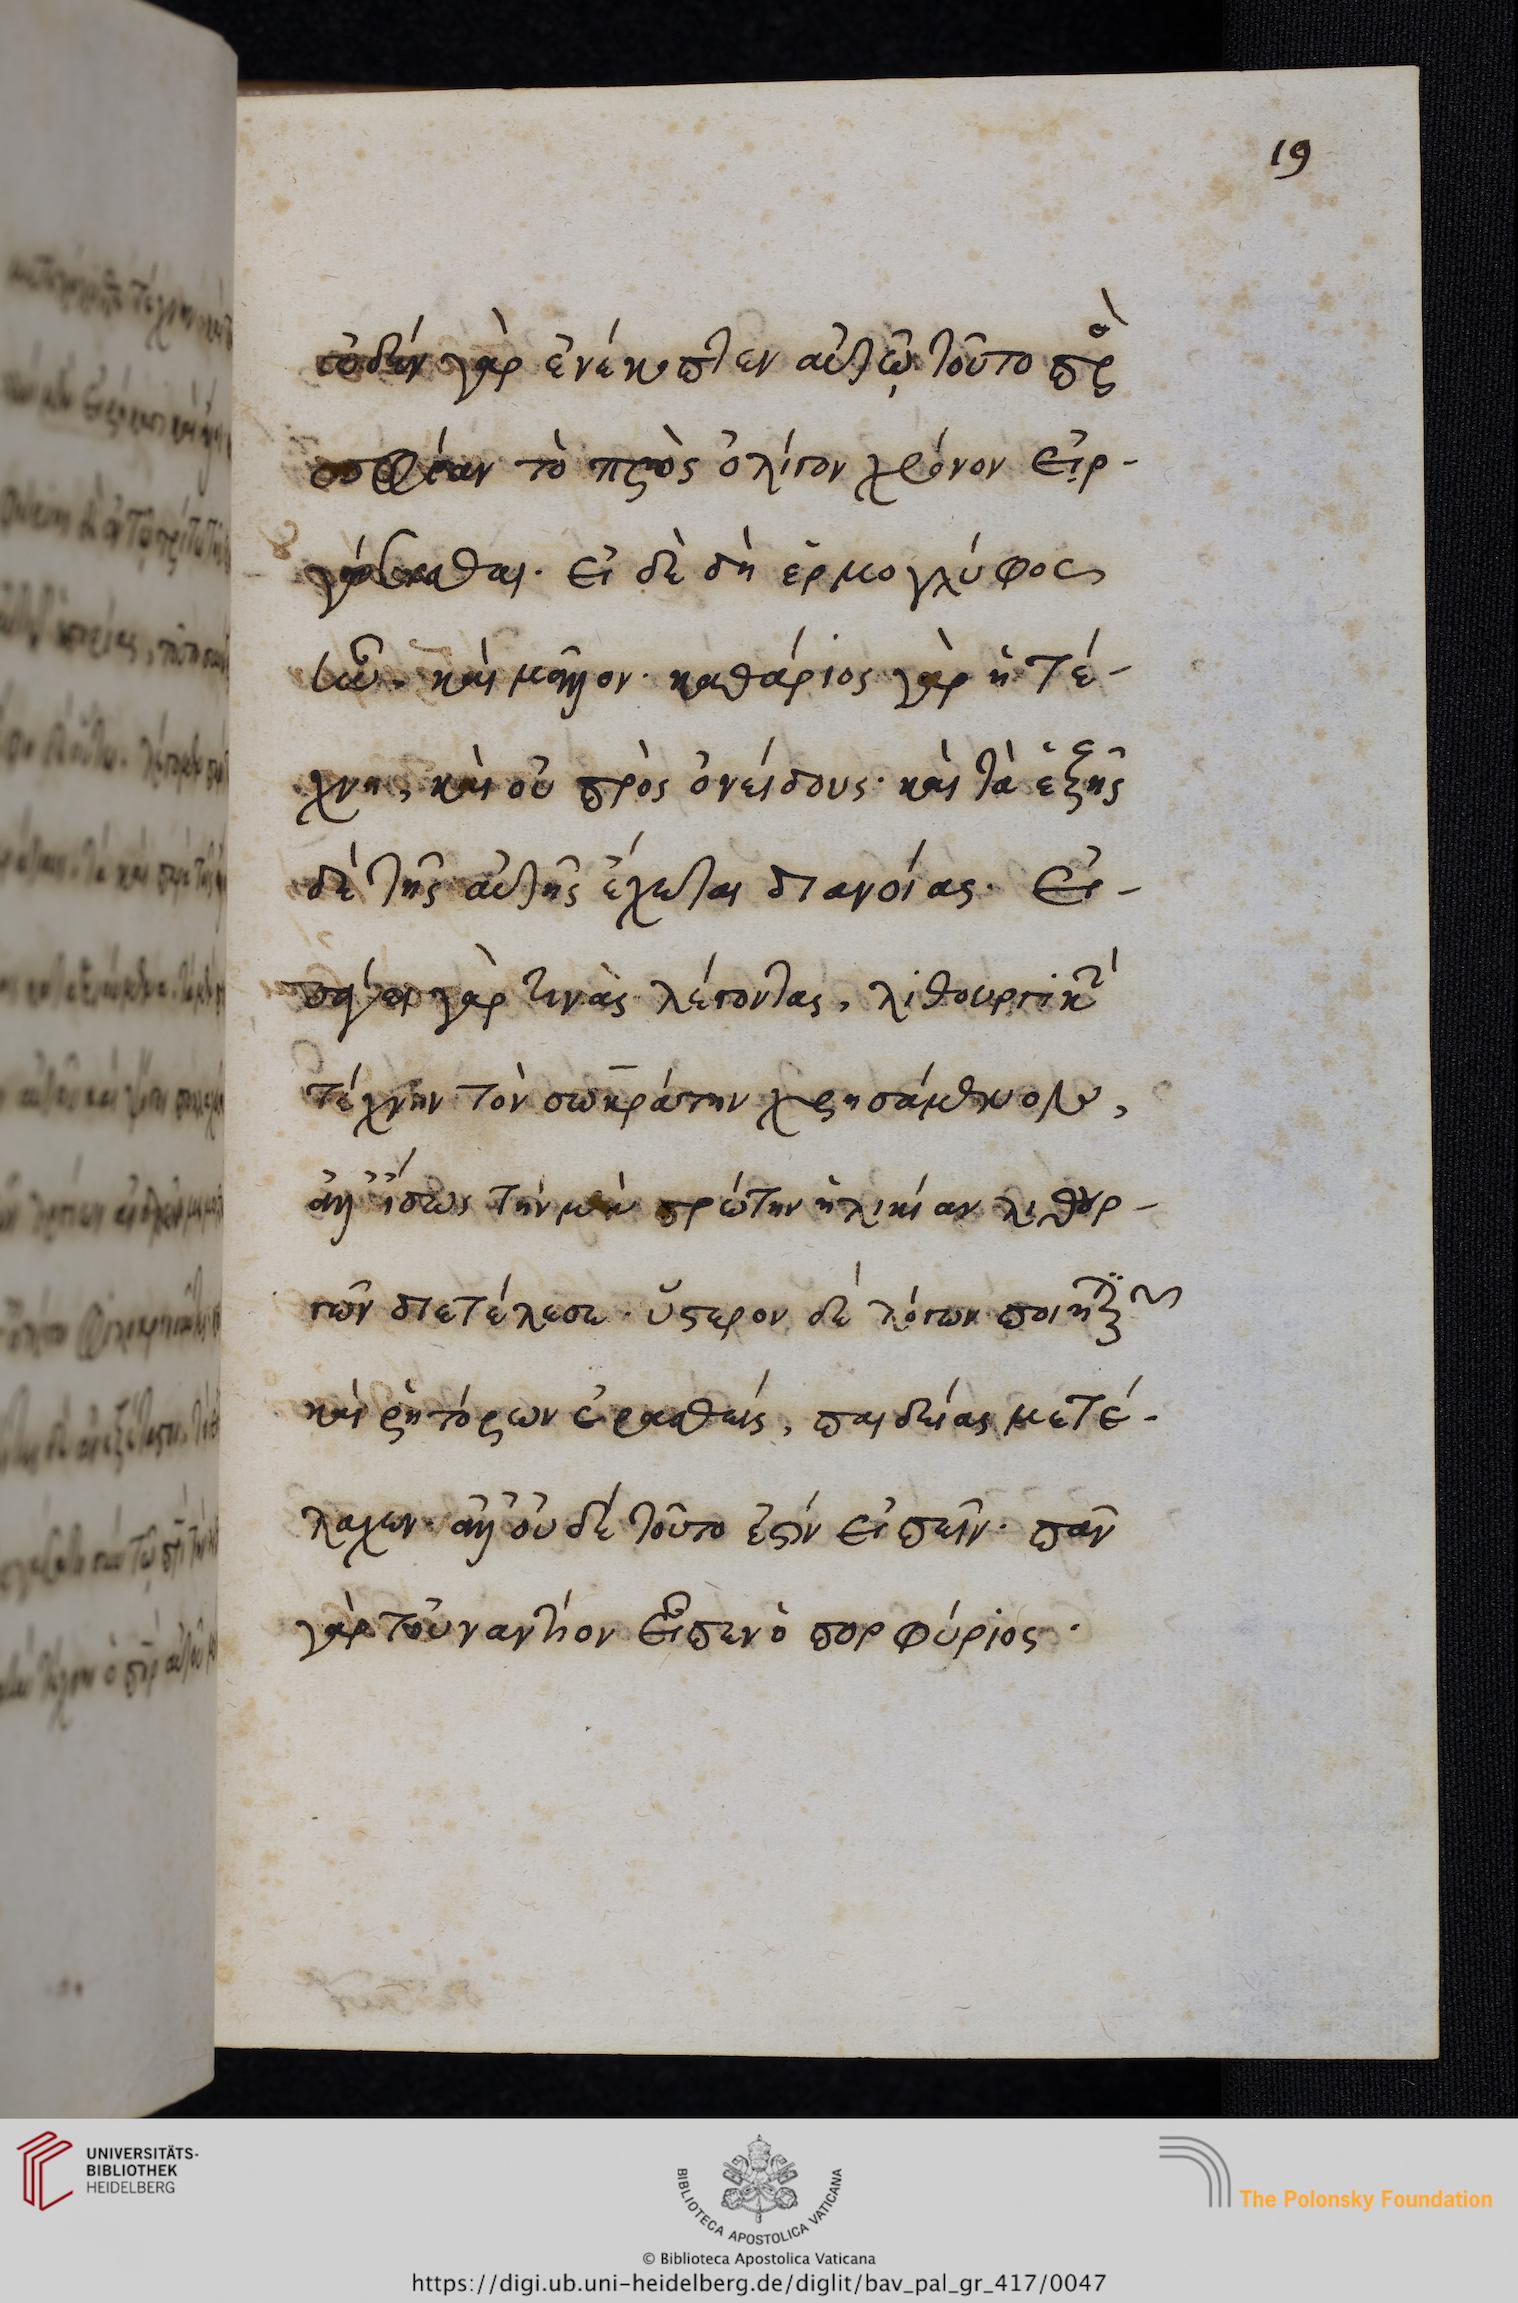 19
οὐδὲν γὰρ ἐνέκοπτεν αὐτῷ τοῦτο πρὸ
σοφίαν τὸ πρὸς ὀλίγον χρόνον εἰρ-
γάσθαι. εἰ δὲ δὴ ἑρμογλύφος
ἦν. καὶ μᾶλλον. καθάριος γὰρ ἡ τέ-
χνη, καὶ οὐ πρὸς ὀνείδους. καὶ τὰ ἑξῆς
δὲ τῆς αὐτῆς ἔχεται διανοίας. εἰ-
σάγει γὰρ τινὰς λέγοντας, λιθουργικ
τέχνην τὸν σωκράτην χρησάμενον,
ἀλλ' ἴσως τὴν μὲν πρώτην ἡλικίαν λιθουρ-
γῶν διετέλεσε. ὕστερον δὲ λόγων
καὶ ῥητόρων ἐρασθεὶς, παιδείας μετέ-
λαχεν. ἀλλ' οὐδὲ τοῦτο ἐστὶν εἰπεῖν. πᾶν
γὰρ τοὐναντίον εἶπεν ὁ πορφύριος.
UNIVERSITÄTS-
BIBLIOTHEK
HEIDELBERG
BIBLIOTECA APOSTOLICA VATICANA
The Polonsky Foundation
© Biblioteca Apostolica Vaticana
https://digi.ub.uni-heidelberg.de/diglit/bav_pal_gr_417/0047